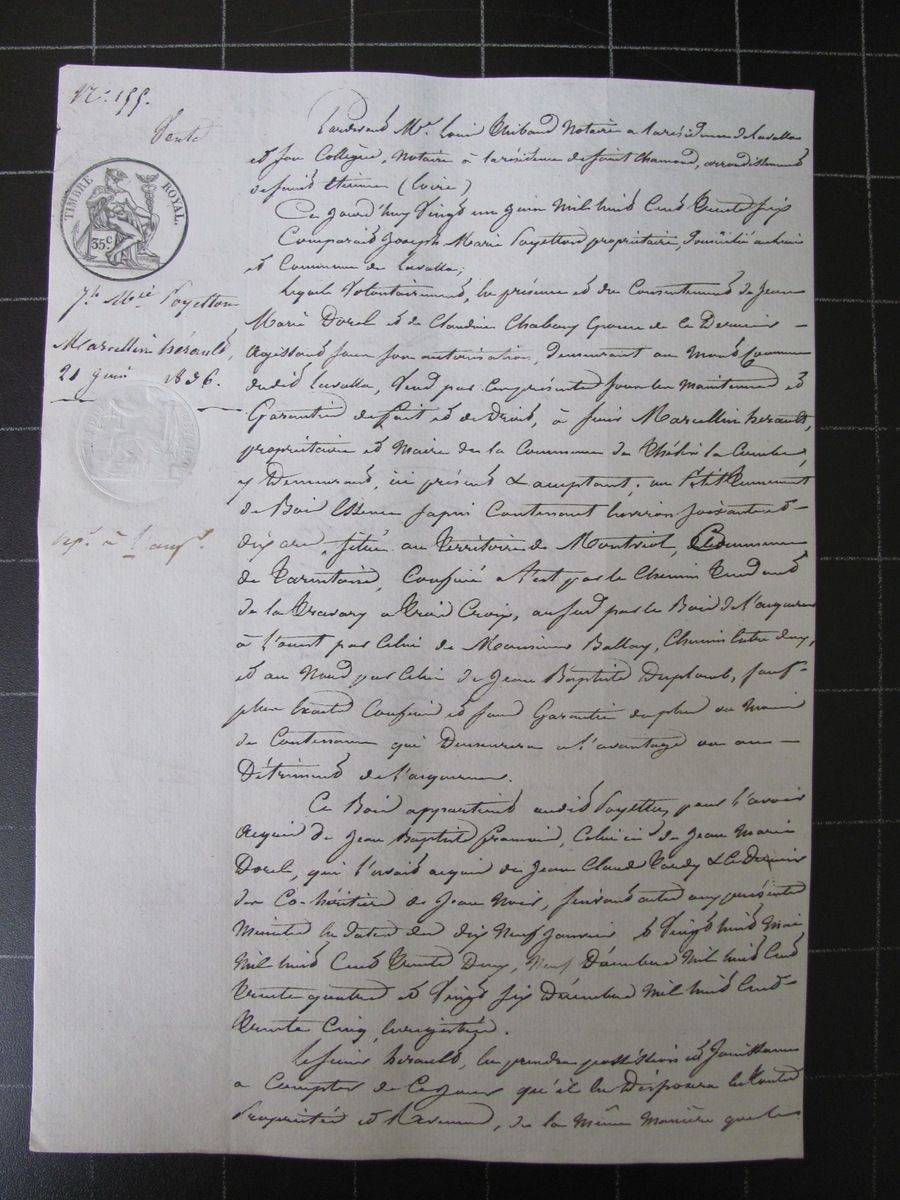 N.° 155.
Vente
TIMBRE ROYAL.
35 c
Jh Mie Poyetton
Marcellin hérault,
21 juin 1836.
Pardevant Me Louis Thibaud Notaire a la résidence de Lavalla
et son Collègue, Notaire à la résidence de Saint Chamond, arrondissement
de Saint Etienne (Loire)
Ce jourd'huy Vingt un juin Mil huit Cent Trente Six
Comparait Joseph Marie Poyetton propriétaire, Domicilié au
et Commune de Lavalla;
Lequel Volontairement, En présence et du Consentement de Jean
Marie Dorel et de Claudine Chabany Epouse de ce Dernier
agissant sous son autorisation, demeurant au Commune
dudit Lavalla, Vend par Ces présentes sous la Maintenue et
Garantie de fait et de Droit, à sieur Marcellin herault,
propriétaire et Maire de la Commune de Thélis la Combe,
y Demeurant, ici présent & acceptant; un Petit Tènement
de Bois Essence sapin Contenant Environ soixante et
dix are, situé au Territoire de Montriol, Commune
de Tarentaise, Confiné a l'est par le Chemin Tendant
de la a Trois Croix, au sud par le Bois de l'acquereur
à l'ouest par Celui de Monsieur Balley, Chemin Entre deux,
et au Nord par Celui de Jean Baptiste Duplomb, sauf
plus Exacts Confins et sans Garantie du plus ou Moins
de Contenance qui Demeurera a l'avantage ou au
Détriment de l'acquereur.
Ce Bois appartient audit Poyetton, pour l'avoir
acquis de Jean Baptiste, Celui ci de Jean Marie
Dorel, qui l'avait acquis de Jean Claude Tardy & Ce Dernier
des Co-héritiers de Jean Noir, suivant actes aux présentes
Minutes En dates des dix Neuf Janvier & Vingt huit Mai
Mil huit Cent Trente Deux, Neuf Décembre Mil huit Cent
Trente quatre et Vingt six Décembre Mil huit Cent
Trente Cinq, Enregistrés.
Le sieur herault, En prendra possession et Jouissance
a Compter de Ce jour qu'il En Disposera En Toutes
Propriétés et Revenus, de la Même Manière que le